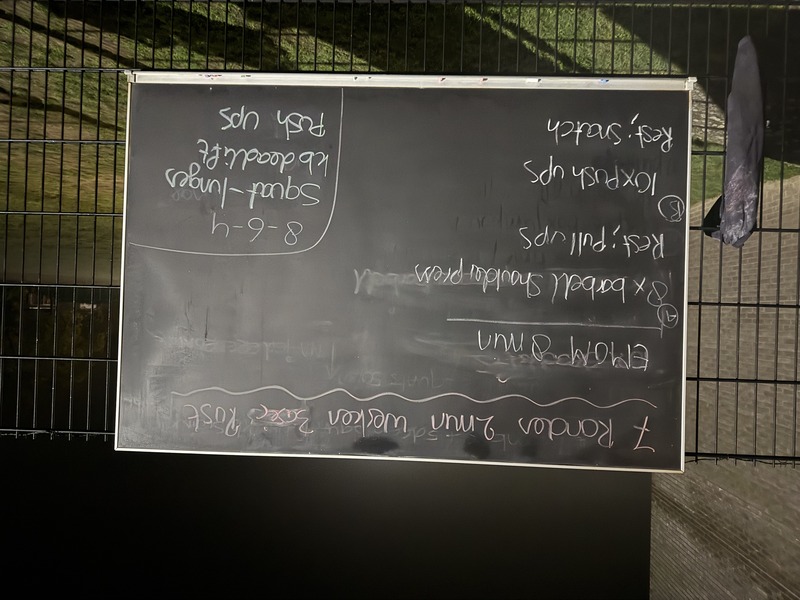 7 Rondes 2min werken 30sec Rust
EMOM 8 min
A
8x barbell Shoulderpress
Rest; Pull ups
B
10x push ups
Rest; snatch
8-6-4
Squat-lunges
kb deadlift
Push ups